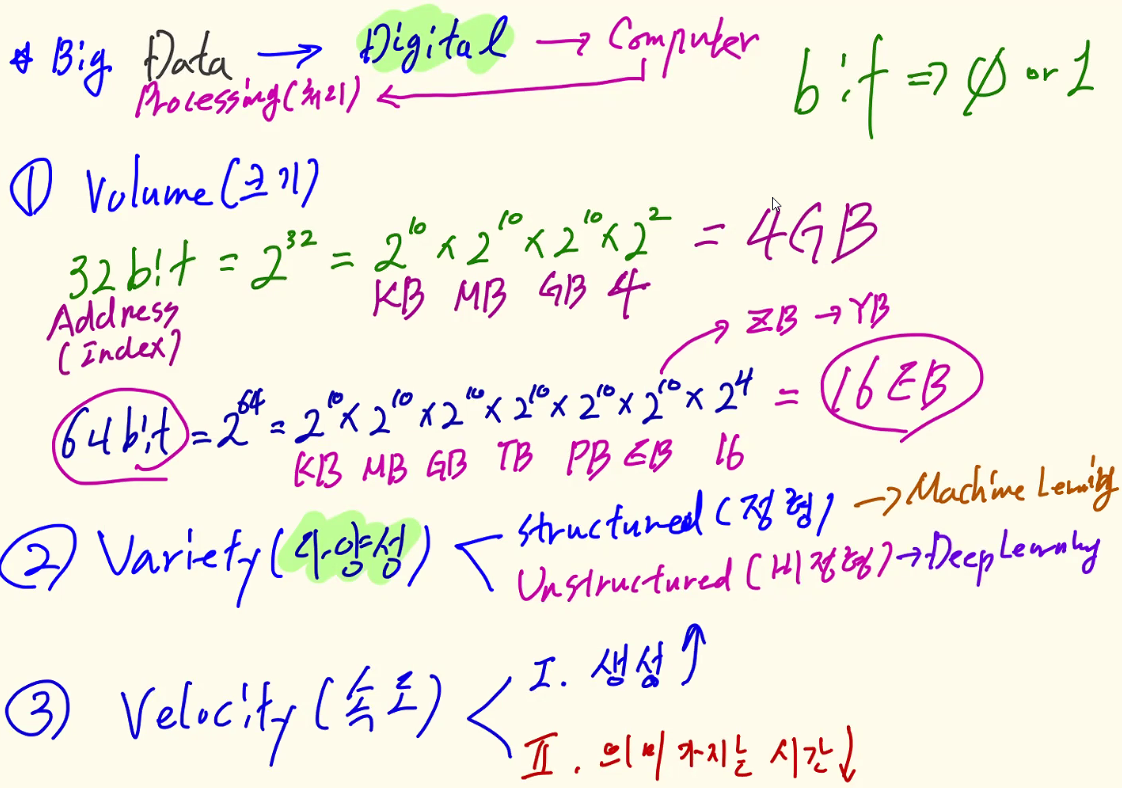 * Big Data → Digital → Computer
Processing(처리)
bit ⇒ 0 or 1
① Volume(크기)
32bit = 2^32 = 2^10 × 2^10 × 2^10 × 2^2 = 4GB
KB MB GB 4
Address
(Index)
→ ZB → YB
64bit = 2^64 = 2^10 × 2^10 × 2^10 × 2^10 × 2^10 × 2^10 × 2^4 = 16EB
KB MB GB TB PB EB 16
② Variety(다양성)
Structured(정형) → Machine Lerning
Unstructured(비정형) → Deep Learning
③ Velocity(속도)
I. 생성↑
II. 의미 가지는 시간↓